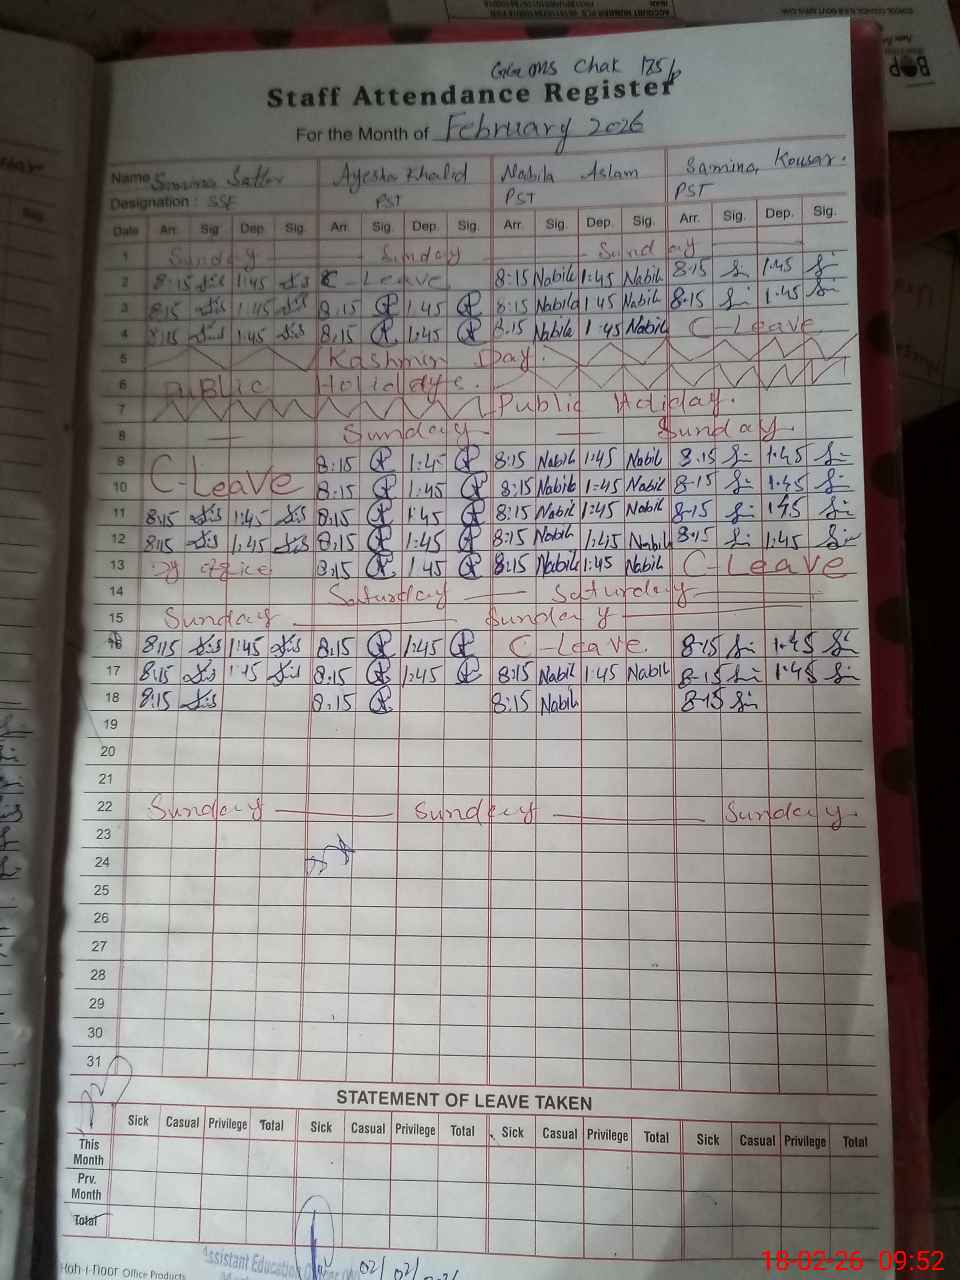 GGCMS Chak 175/P
Staff Attendance Register
For the Month of February 2026
Name Samina Sattar Ayesha Khalid Nabila Aslam Samina Kousar.
Designation : SSE PST PST PST
Date Arr. Sig. Dep. Sig. Arr. Sig. Dep. Sig. Arr. Sig. Dep. Sig. Arr. Sig. Dep. Sig.
1 Sunday Sunday Sunday
2 8:15 1:45 C-Leave 8:15 Nabila 1:45 Nabil 8-15 1:45
3 8:15 1:45 8:15 1:45 8:15 Nabila 1:45 Nabil 8-15 1:45
4 8:15 1:45 8:15 1:45 8:15 Nabila 1:45 Nabil C-Leave
5 Kashmir Day.
6 Public Holidays.
7 Public Holiday.
8 Sunday Sunday
9 C-Leave 8:15 1:45 8:15 Nabil 1:45 Nabil 8.15 1:45
10 8:15 1:45 8:15 Nabila 1:45 Nabil 8-15 1:45
11 8:15 1:45 8:15 1:45 8:15 Nabila 1:45 Nabil 8-15 1:45
12 8:15 1:45 8:15 1:45 8:15 Nabila 1:45 Nabila 8:15 1:45
13 office 8:15 1:45 8:15 Nabila 1:45 Nabil C-Leave
14 Saturday Saturday
15 Sunday Sunday
16 8:15 1:45 8:15 1:45 C-Leave 8-15 1:45
17 8:15 1:45 8:15 1:45 8:15 Nabil 1:45 Nabil 8-15 1:45
18 8:15 8:15 8:15 Nabil 8-15
19
20
21
22 Sunday Sunday Sunday.
23
24
25
26
27
28
29
30
31
STATEMENT OF LEAVE TAKEN
Sick Casual Privilege Total Sick Casual Privilege Total Sick Casual Privilege Total Sick Casual Privilege Total
This Month
Prv. Month
Total
Assistant Education
02/02/
Koh-i-noor Office Products
18-02-26 09:52